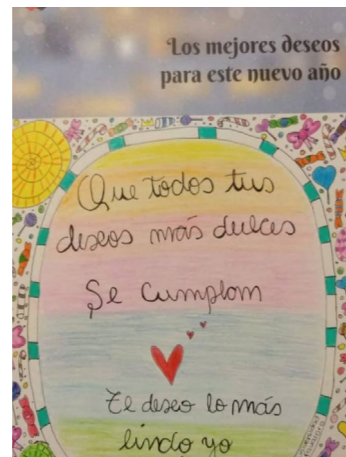 Los mejores deseos
para este nuevo año
Que todos tus
deseos más dulces
Se cumplom
Te deseo lo más
lindo yo